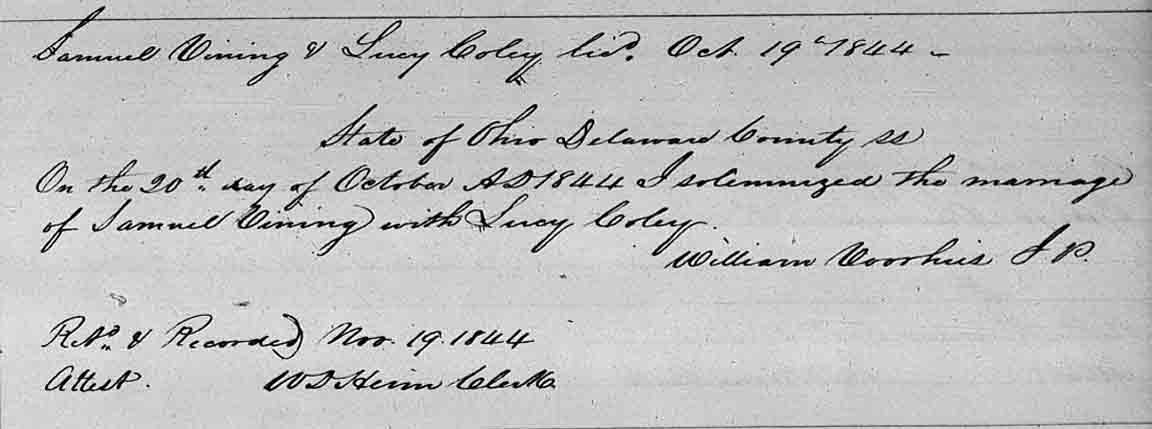 Samuel Vining & Lucy Coley licd. Oct. 19th 1844 -
State of Ohio Delaware County ss
On the 20th day of October AD 1844 I solemnized the marriage
of Samuel Vining with Lucy Coley.
William Voorhies J P.
Retd & Recorded Nov. 19. 1844
Attest. W D Heim Clerk